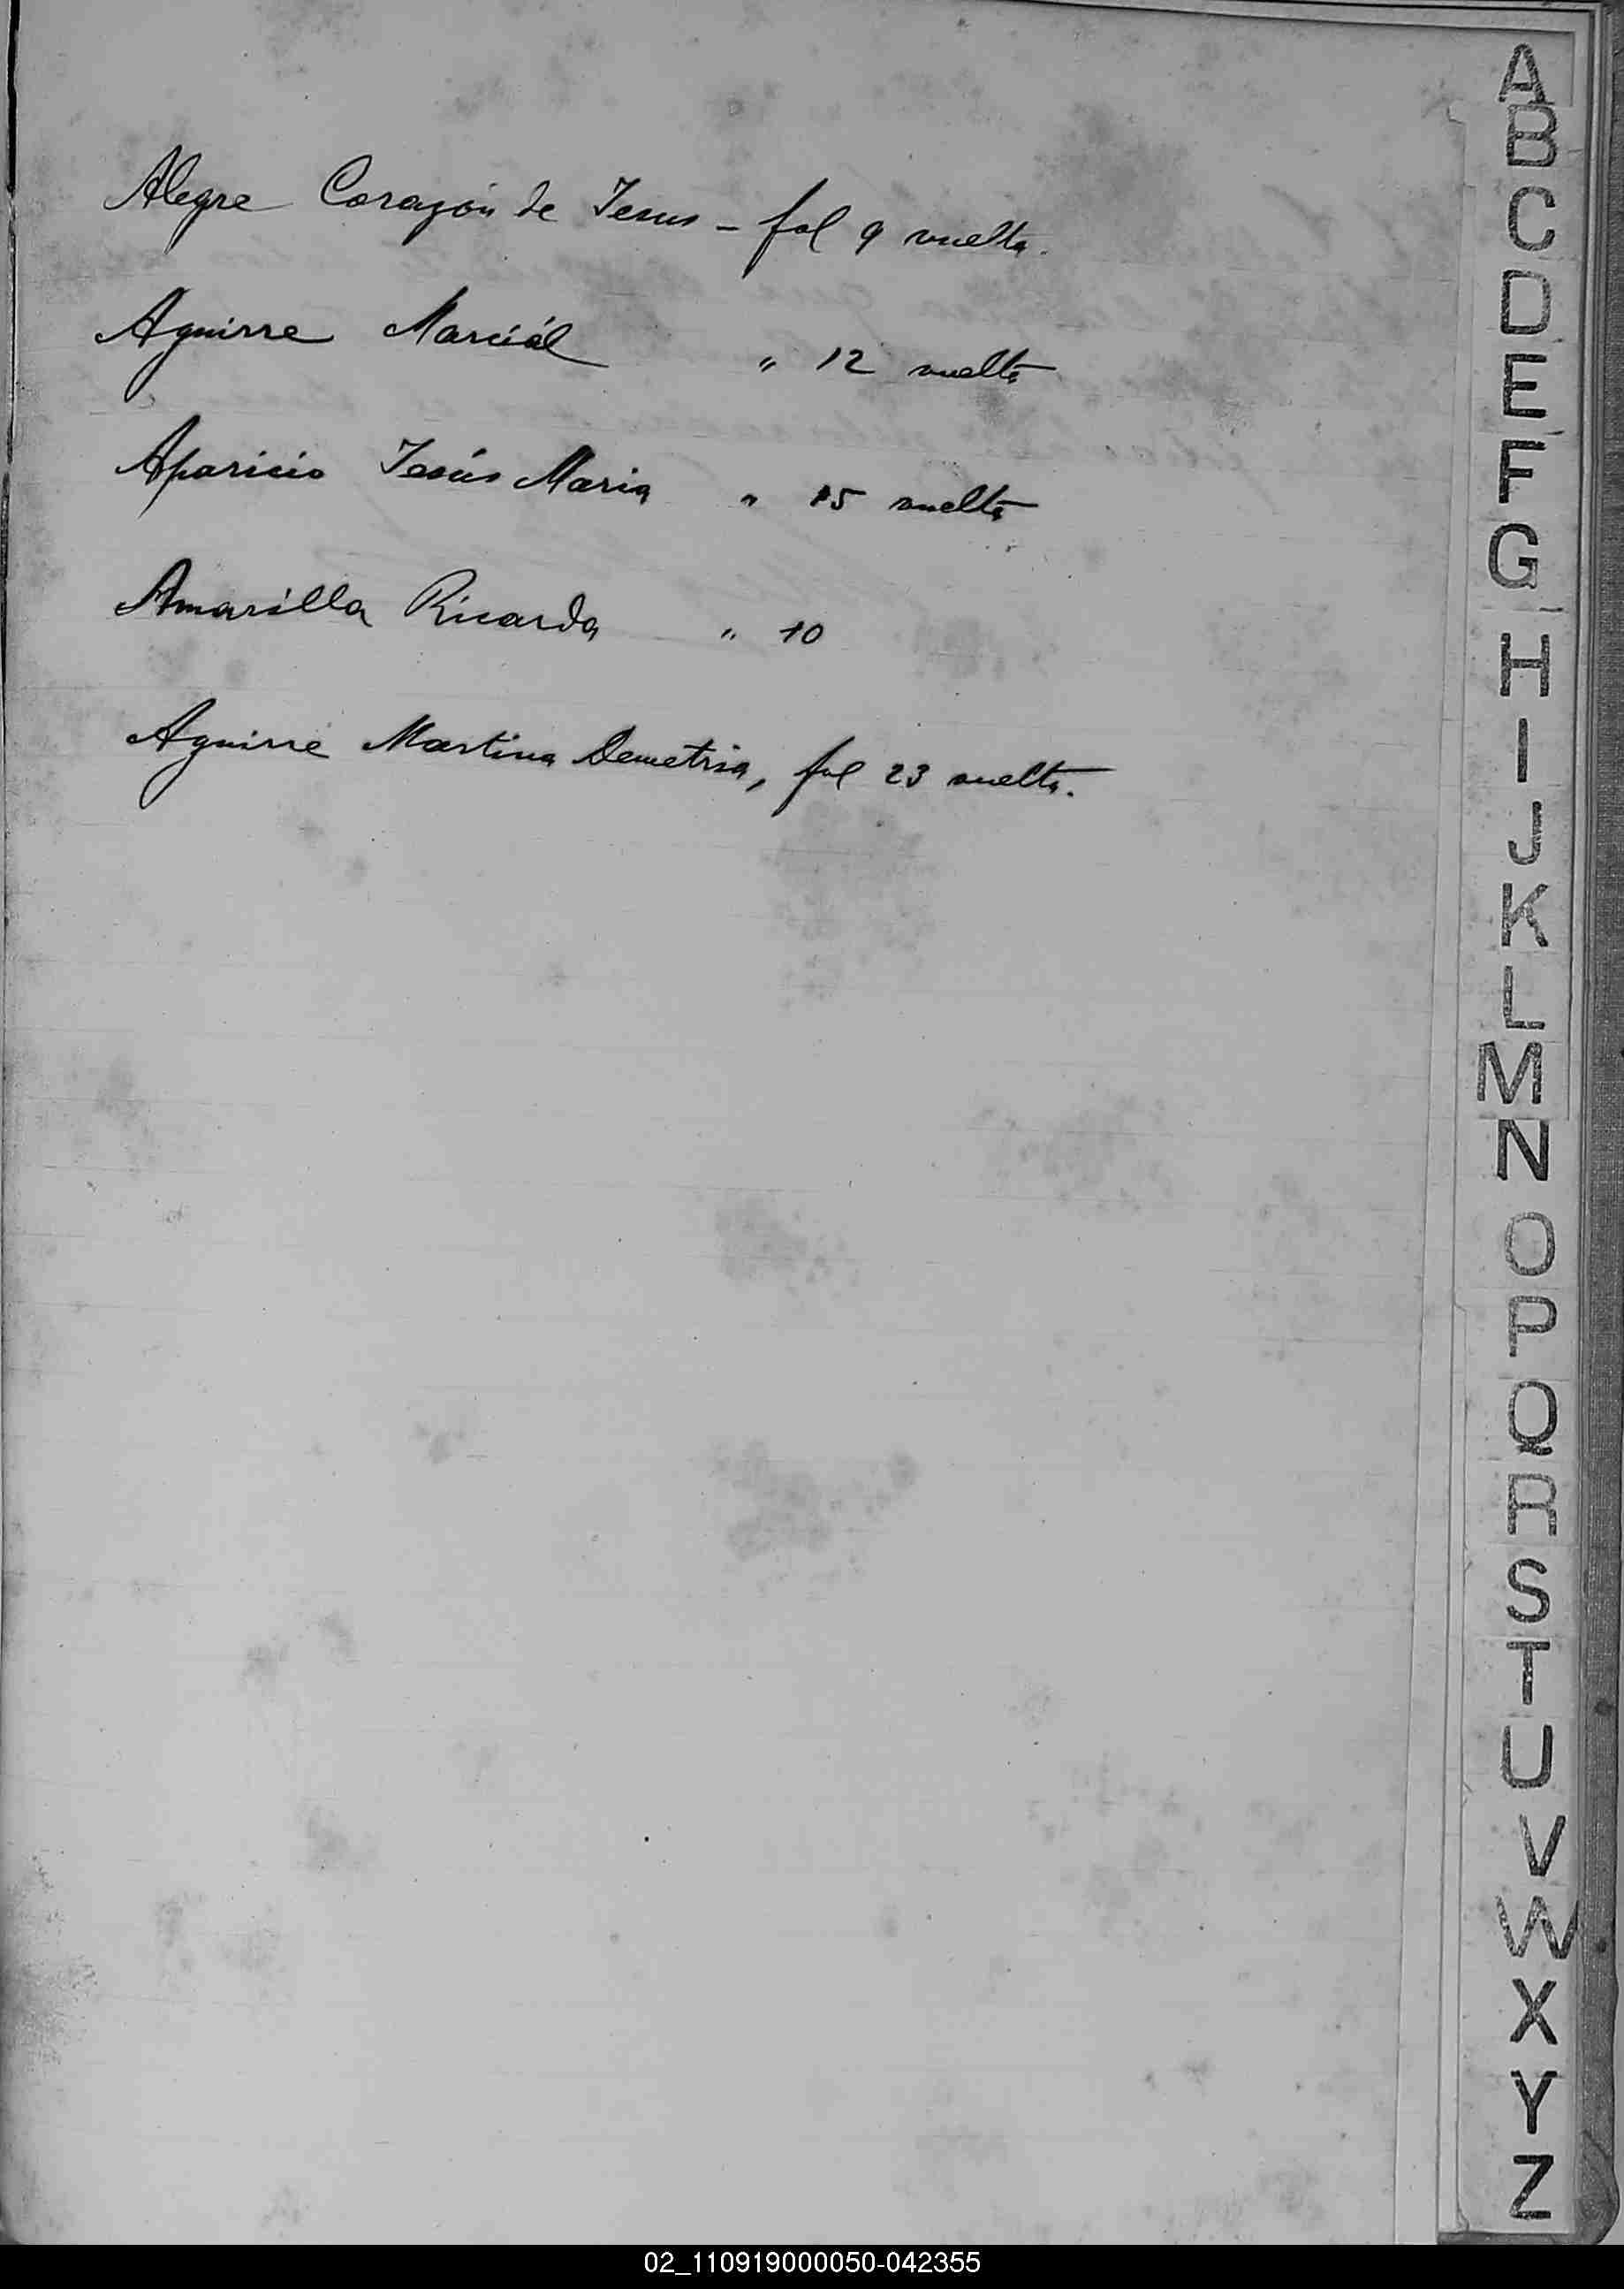 Alegre Corazón de Jesus - fol 9 vuelta.
Aguirre Marciál " 12 vuelta
Aparicio Jesús Maria " 15 vuelta
Amarilla Ricarda " 10
Aguirre Martina Demetria, fol 23 vuelta.
A
B
C
D
E
F
G
H
I
J
K
L
M
N
O
P
Q
R
S
T
U
V
W
X
Y
Z
02_110919000050-042355